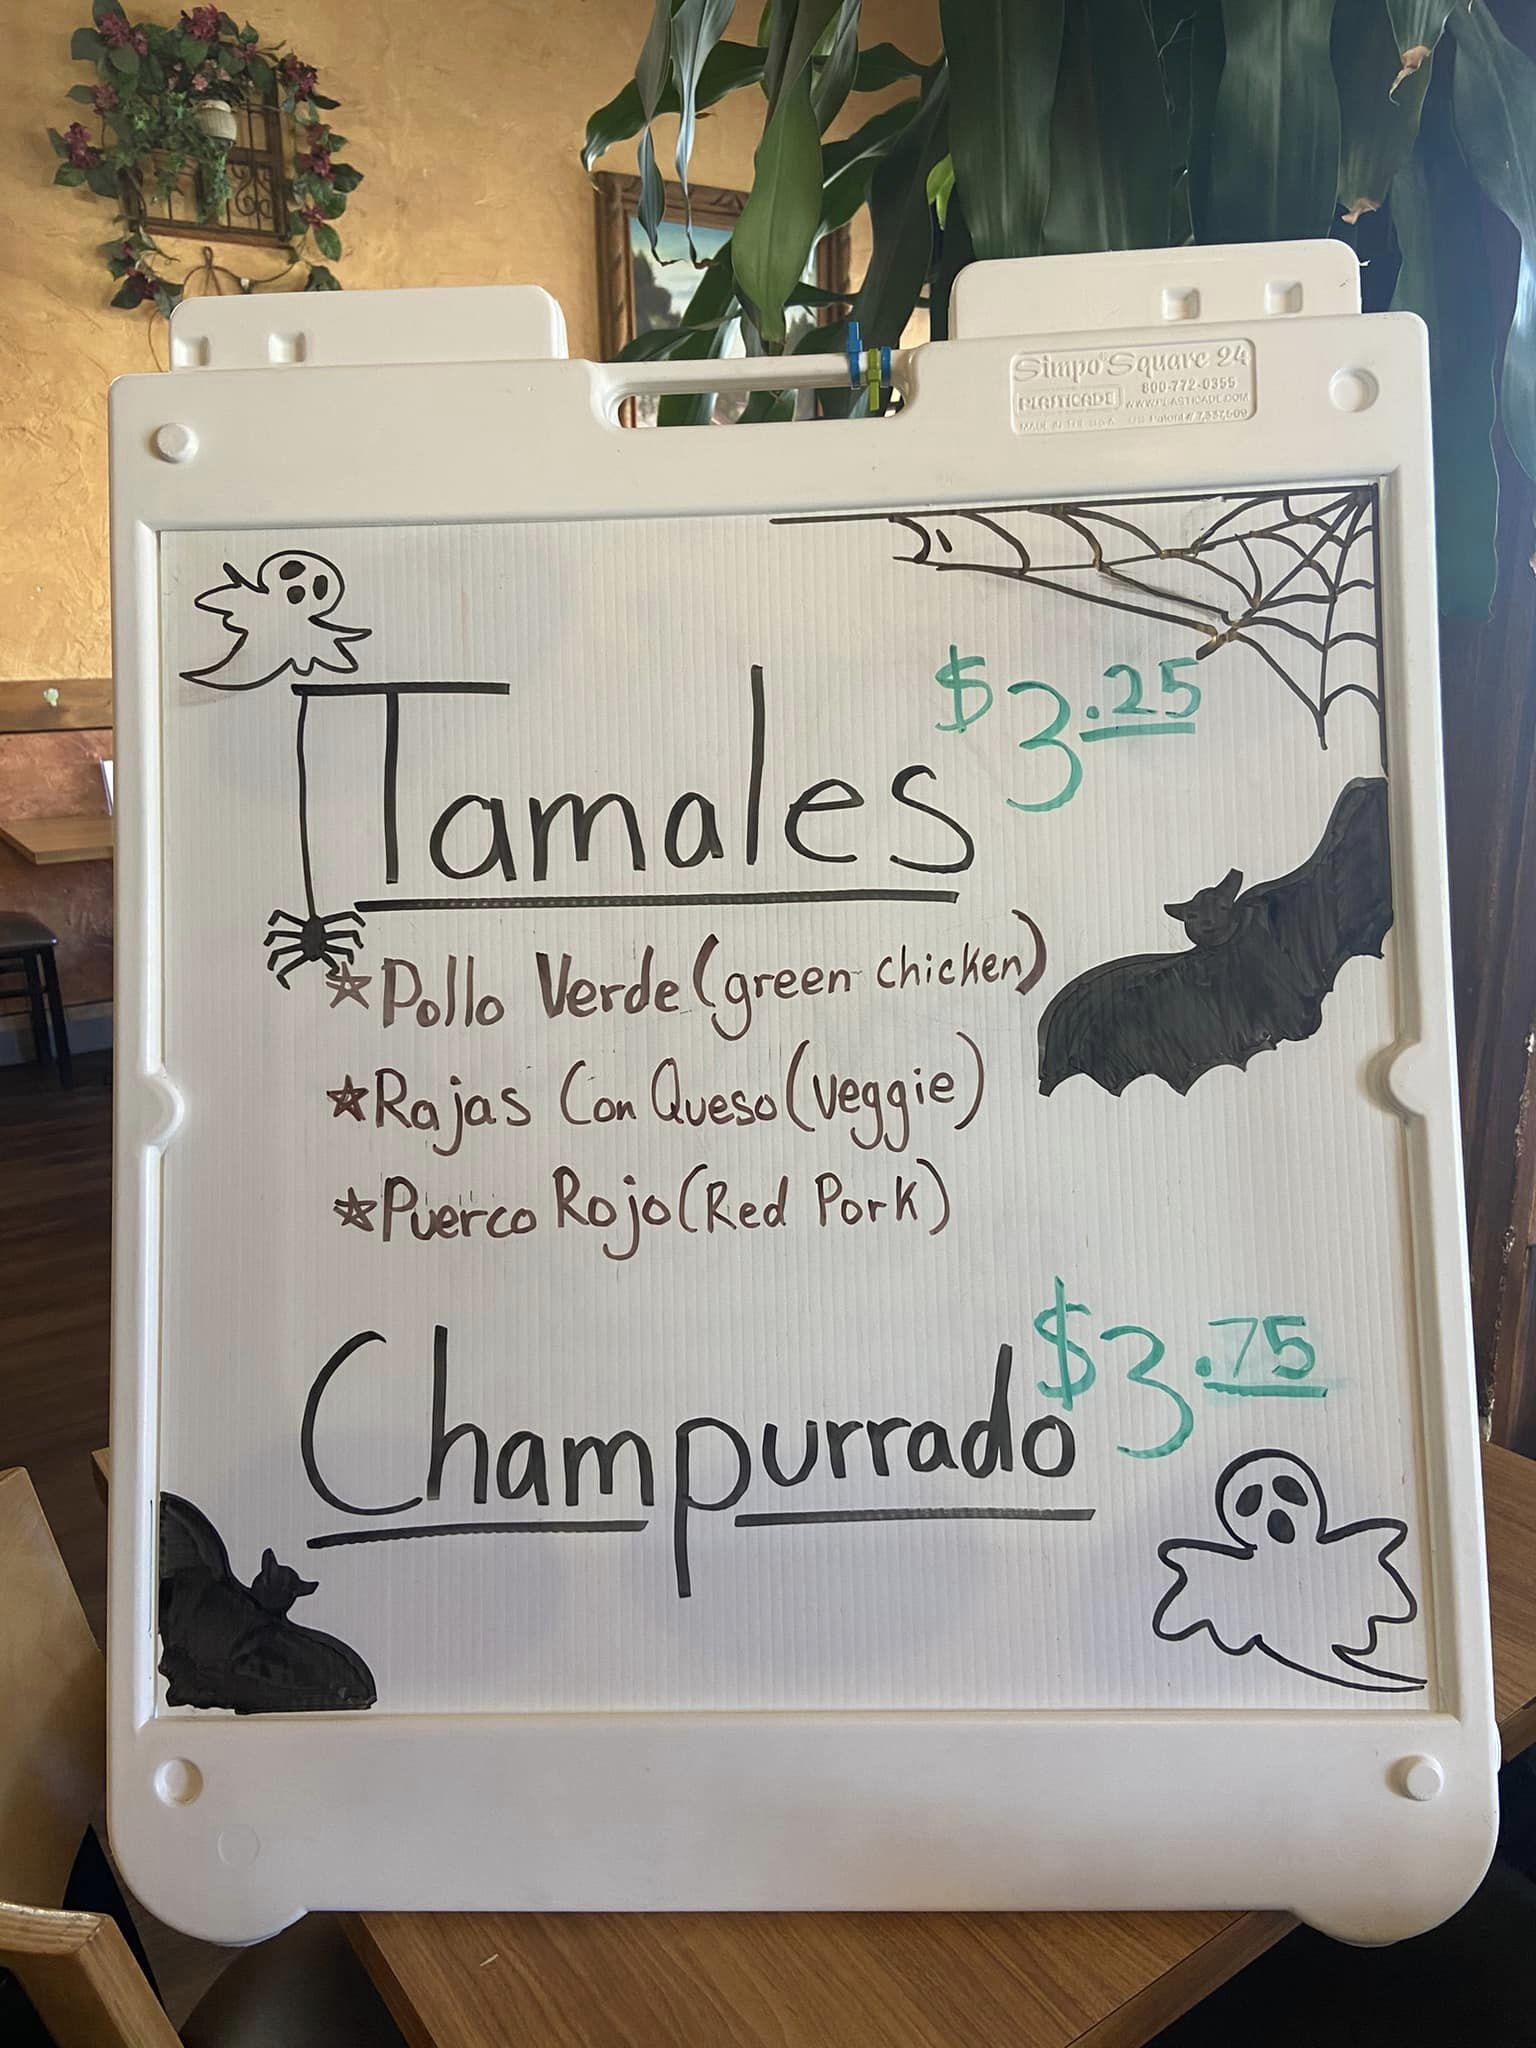 Simpo® Square 24
PLASTICADE
800-772-0355
WWW.PLASTICADE.COM
MADE IN THE U.S.A. U.S. Patent # 7,337,509
$3.25
Tamales
Pollo Verde (green chicken)
Rajas Con Queso (veggie)
Puerco Rojo (Red Pork)
$3.75
Champurrado